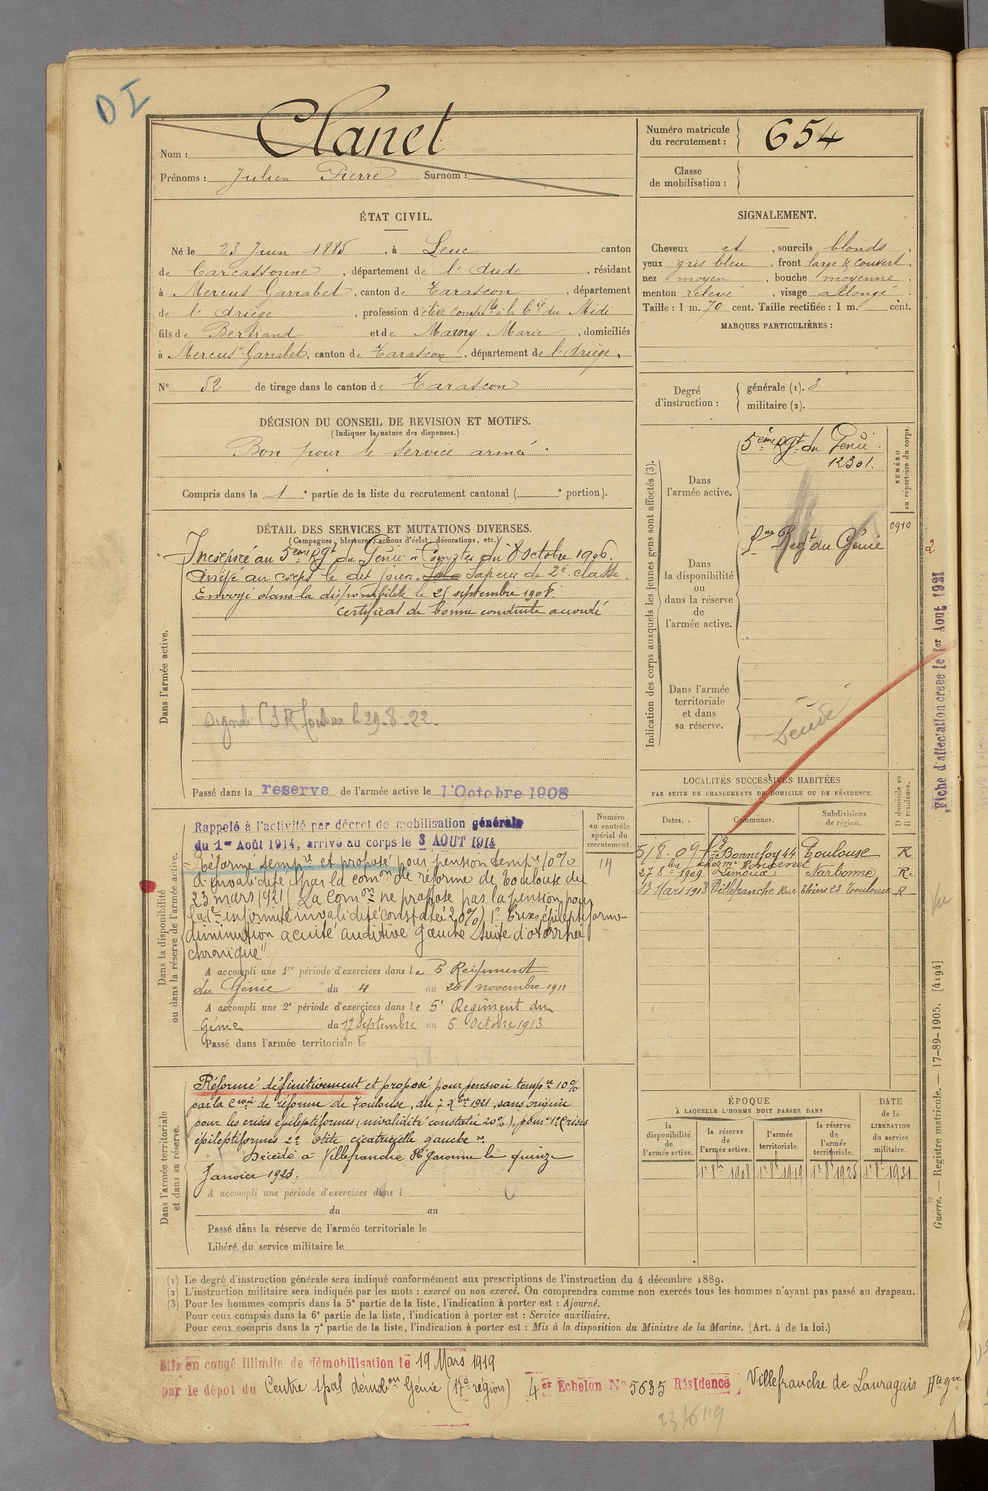 D I
Nom : Clanet
Prénoms : Julien Pierre Surnom :
Numéro matricule du recrutement : 654
Classe de mobilisation :
ÉTAT CIVIL.
Né le 23 Juin 1885, à Leuc canton
de Carcassonne, département de l'Aude, résidant
à Mercus Garrabet, canton de Tarascon, département
de l'Ariège, profession d'élève compble à la Cie du Midi
fils de Bertrand et de Marory Marie, domiciliés
à Mercus Garrabet, canton de Tarascon, département de l'Ariège.
N° 52 de tirage dans le canton de Tarascon
SIGNALEMENT.
Cheveux et, sourcils blonds.
yeux gris bleu, front large & couvert,
nez moyen, bouche moyenne,
menton relevé, visage allongé.
Taille : 1 m. 70 cent. Taille rectifiée : 1 m. cent.
MARQUES PARTICULIÈRES :
Degré d'instruction : générale (1). 3
militaire (2).
DÉCISION DU CONSEIL DE REVISION ET MOTIFS.
(Indiquer la nature des dispenses.)
Bon pour le service armé.
Compris dans la 1e partie de la liste du recrutement cantonal ( e portion).
DÉTAIL DES SERVICES ET MUTATIONS DIVERSES.
(Campagnes, blessures, actions d'éclat, décorations, etc.)
Dans l'armée active.
Incorporé au 5ème Rgt du Génie à Compter du 8 octobre 1906.
Arrivé au corps le dit jour. Sapeur de 2e classe.
Envoyé dans la disponibilité le 25 septembre 1908.
Certificat de bonne conduite accordé
29-8-22.
Passé dans la réserve de l'armée active le 1 Octobre 1908
Indication des corps auxquels les jeunes gens sont affectés (3).
Dans l'armée active.
5ème Rgt du Génie.
12301.
NUMÉRO au répertoire du corps.
0910
Dans la disponibilité ou dans la réserve de l'armée active.
Regt du Génie
Dans l'armée territoriale et dans sa réserve.
Décédé
2
Fiche d'affectation créée le 1er Aout 1921
LOCALITÉS SUCCESSIVES HABITÉES
PAR SUITE DE CHANGEMENTS DE DOMICILE OU DE RÉSIDENCE.
Dates. Communes. Subdivisions de région. D domicile ou R résidence.
5/8-09 Fg Bonnefoy 44 Toulouse R
27 8bre 1909 Limoux Narbonne R.
12 Mars 1913 Villefranche Rue Thiers 28 Toulouse R
Dans la disponibilité ou dans la réserve de l'armée active.
Numéro au contrôle spécial du recrutement.
14
Rappelé à l'activité par décret de mobilisation générale
du 1er Août 1914, arrivé au corps le 3 AOUT 1914
Réformé tempre et proposé pour pension tempre 10%
d'invalidité par la comon de réforme de Toulouse du
23 mars 1921 (La comon ne propose pas la pension pour
la 1re infirmité invalidité constatée 20%) 1° Crises épileptiformes
diminution acuité auditive gauche suite d'otorrhée
chronique"
A accompli une 1re période d'exercices dans le 5 Régiment
du Génie du 4 au 26 novembre 1911
A accompli une 2e période d'exercices dans le 5e Régiment du
Génie du 17 Septembre au 5 Octobre 1913
Passé dans l'armée territoriale le
Dans l'armée territoriale et dans sa réserve.
Réformé définitivement et proposé pour pension tempre 10%
par la Cion de réforme de Toulouse, du 7 Xbre 1921, sans origine
pour les crises épileptiformes (invalidité constatée 20%), pour 1° Crises
épileptiformes 2° Otite cicatricielle gauche".
Décédé à Villefranche Hte Garonne le quinze
Janvier 1923.
A accompli une période d'exercices dans l
du au
Passé dans la réserve de l'armée territoriale le
Libéré du service militaire le
ÉPOQUE
À LAQUELLE L'HOMME DOIT PASSER DANS
la disponibilité de l'armée active.
la réserve de l'armée active.
l'armée territoriale.
la réserve de l'armée territoriale.
DATE de la LIBERATION du service militaire.
1r 8bre 1908 1r 8e 1919 1r 8e 1925 1r 8e 1931
Guerre. — Registre matricule. — 17-89-1905. [4194]
(1) Le degré d'instruction générale sera indiqué conformément aux prescriptions de l'instruction du 4 décembre 1889.
(2) L'instruction militaire sera indiquée par les mots : exercé ou non exercé. On comprendra comme non exercés tous les hommes n'ayant pas passé au drapeau.
(3) Pour les hommes compris dans la 5e partie de la liste, l'indication à porter est : Ajourné.
Pour ceux compris dans la 6e partie de la liste, l'indication à porter est : Service auxiliaire.
Pour ceux compris dans la 7e partie de la liste, l'indication à porter est : Mis à la disposition du Ministre de la Marine. (Art. 4 de la loi.)
Mis en congé illimité de démobilisation le 19 Mars 1919
par le dépot du Centre spal démobon Génie (17e région) 4er Echelon N° 5635 Résidence Villefranche de Lauragais Hte gne
23/6/19